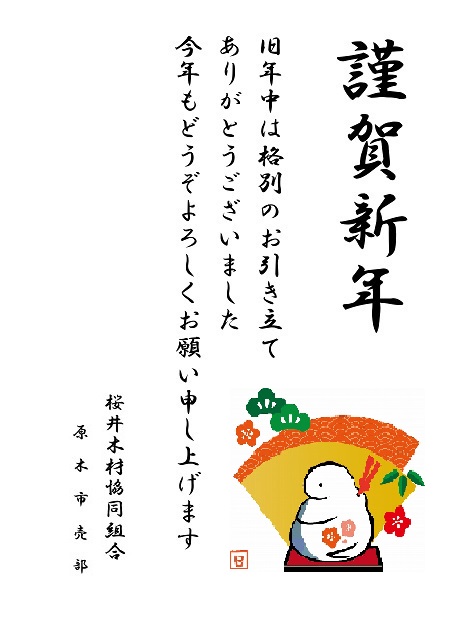 謹賀新年
旧年中は格別のお引き立て
ありがとうございました
今年もどうぞよろしくお願い申し上げます
桜井木材協同組合
原木市売部